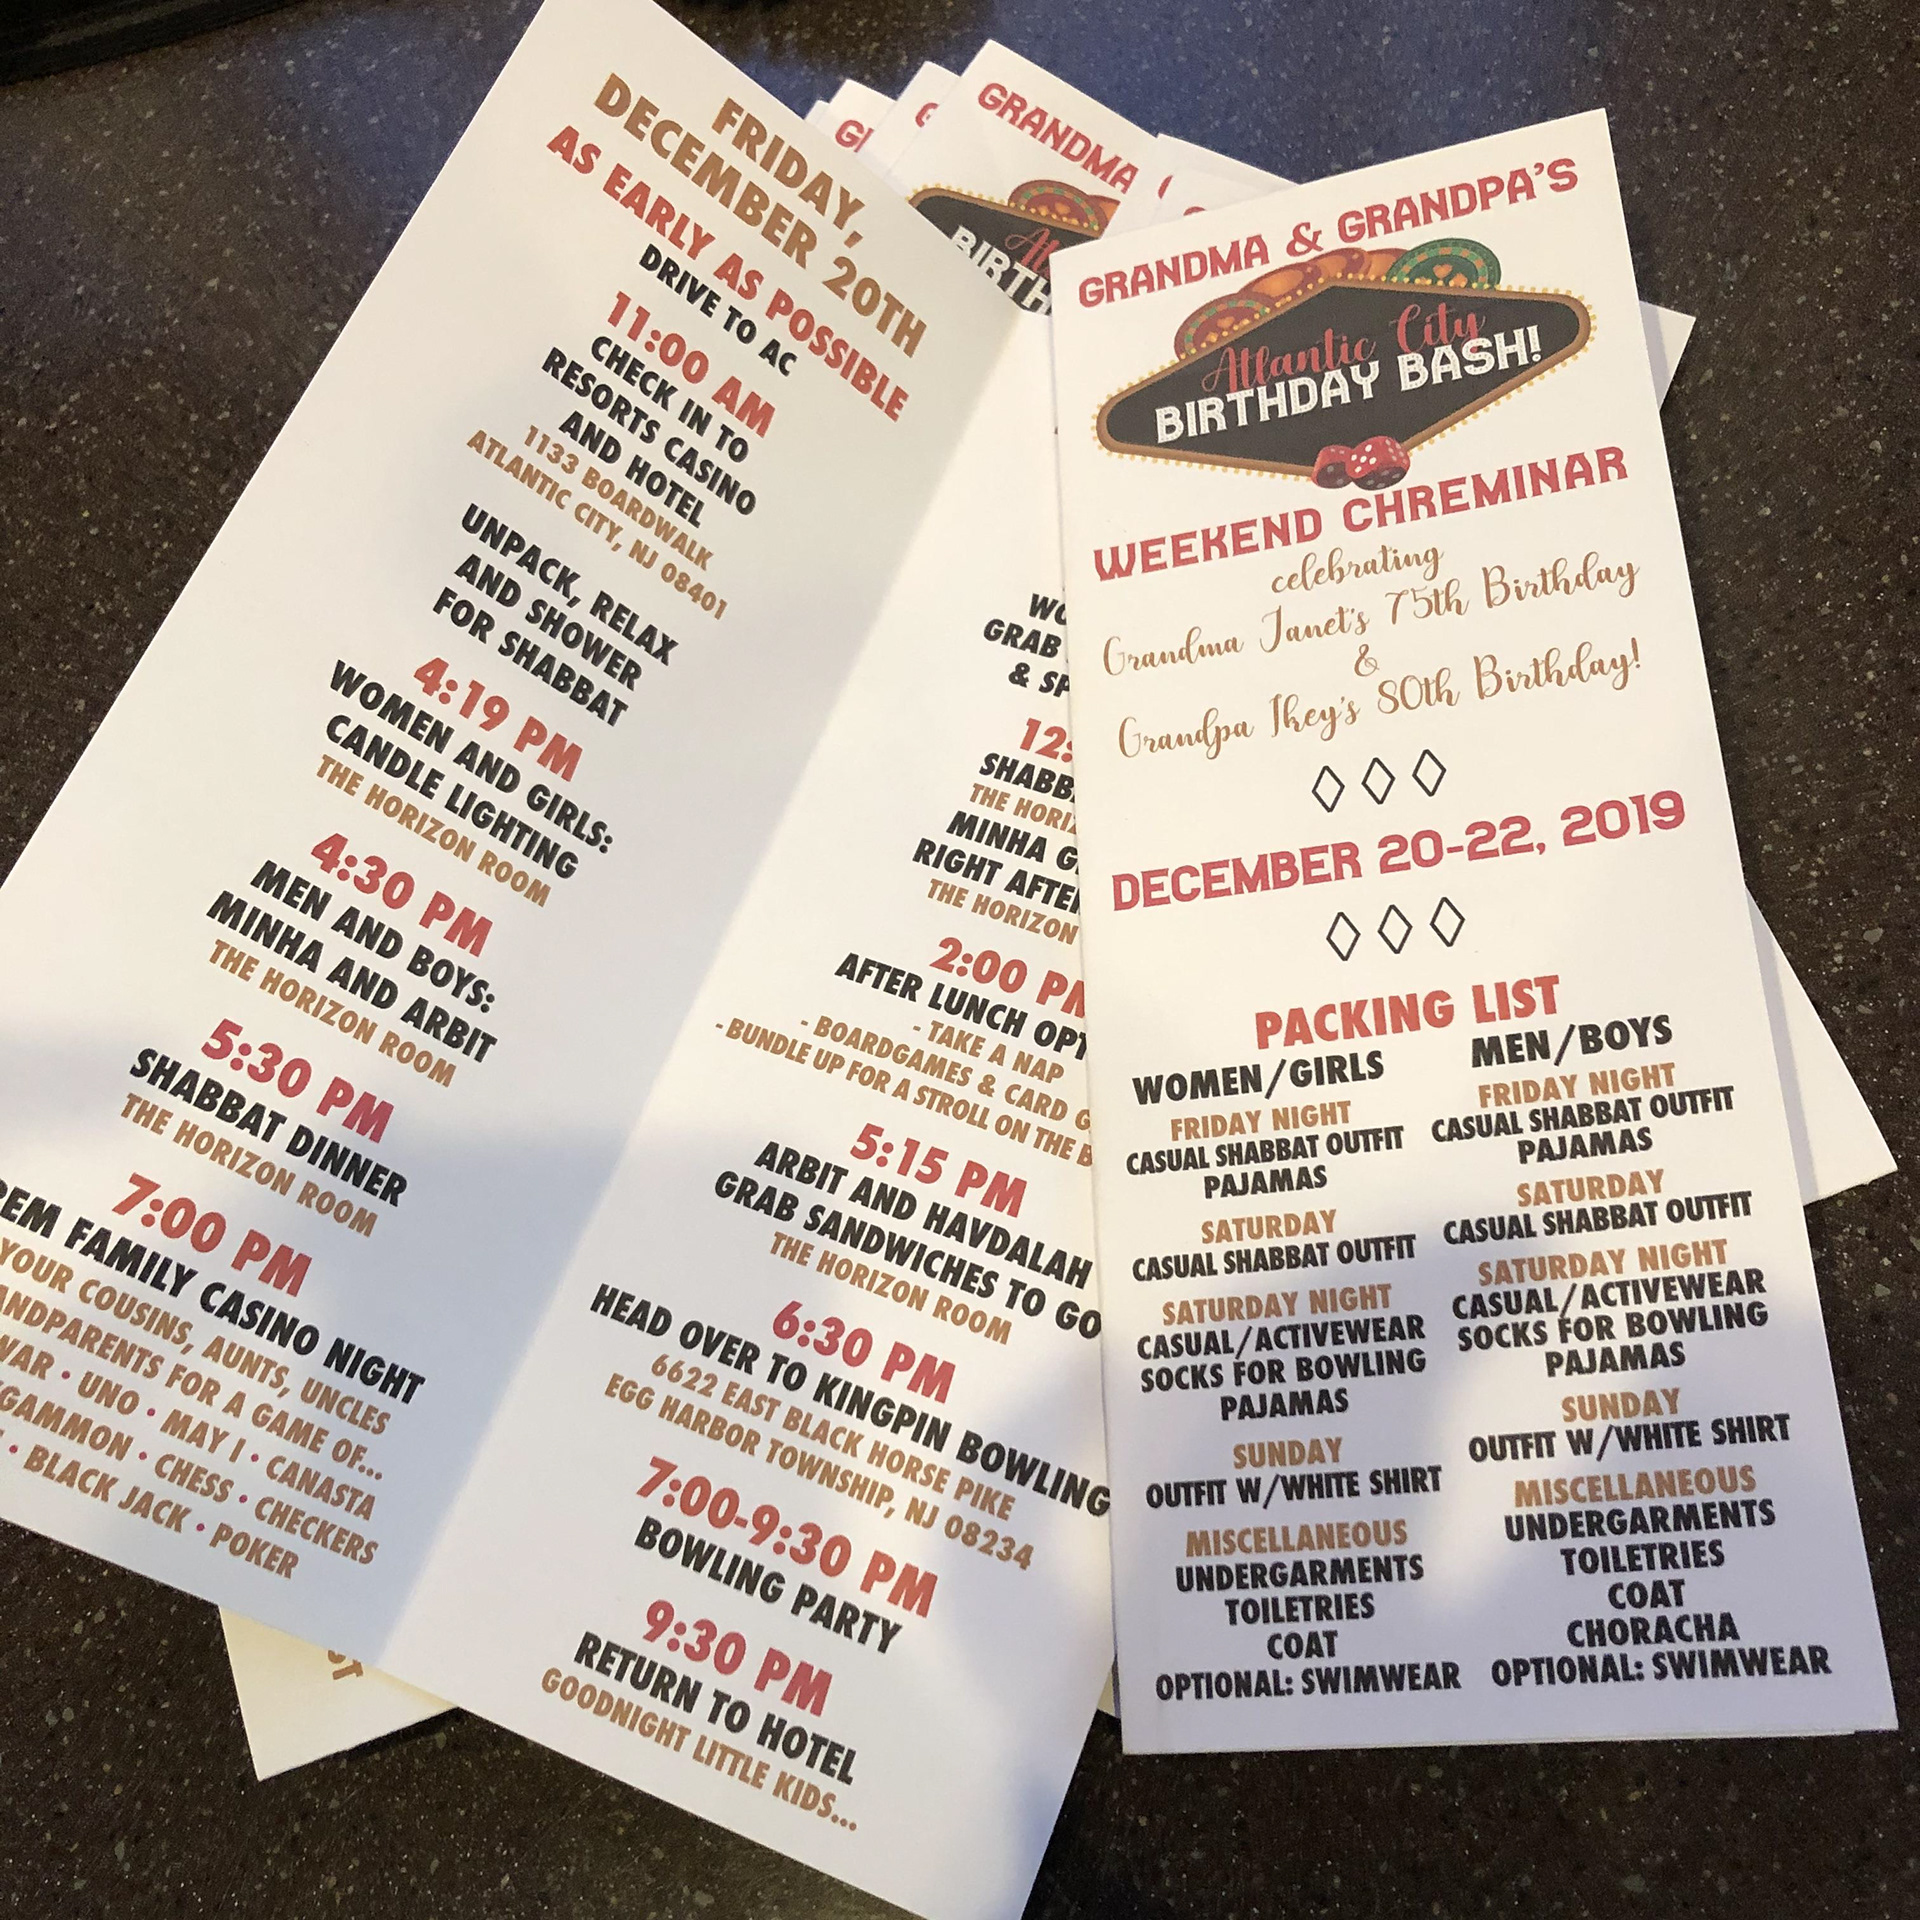 FRIDAY,
DECEMBER 20TH
AS EARLY AS POSSIBLE
DRIVE TO AC
11:00 AM
CHECK IN TO
RESORTS CASINO
AND HOTEL
1133 BOARDWALK
ATLANTIC CITY, NJ 08401
UNPACK, RELAX
AND SHOWER
FOR SHABBAT
4:19 PM
WOMEN AND GIRLS:
CANDLE LIGHTING
THE HORIZON ROOM
4:30 PM
MEN AND BOYS:
MINHA AND ARBIT
THE HORIZON ROOM
5:30 PM
SHABBAT DINNER
THE HORIZON ROOM
7:00 PM
FAMILY CASINO NIGHT
YOUR COUSINS, AUNTS, UNCLES
FOR A GAME OF...
WAR • UNO • MAY I • CANASTA
• CHESS • CHECKERS
• BLACK JACK • POKER
GRAB
&
SHABB
THE HORIZ
MINHA
RIGHT AFTE
THE HORIZON
2:00 PM
AFTER LUNCH OPT
- TAKE A NAP
- BOARDGAMES & CARD G
- BUNDLE UP FOR A STROLL ON THE B
5:15 PM
ARBIT AND HAVDALAH
GRAB SANDWICHES TO GO
THE HORIZON ROOM
6:30 PM
HEAD OVER TO KINGPIN BOWLING
6622 EAST BLACK HORSE PIKE
EGG HARBOR TOWNSHIP, NJ 08234
7:00-9:30 PM
BOWLING PARTY
9:30 PM
RETURN TO HOTEL
GOODNIGHT LITTLE KIDS...
GRANDMA
BIRTH
GRANDMA & GRANDPA'S
Atlantic City
BIRTHDAY BASH!
WEEKEND CHREMINAR
celebrating
Grandma Janet's 75th Birthday
&
Grandpa Ikey's 80th Birthday!
DECEMBER 20-22, 2019
PACKING LIST
WOMEN/GIRLS
FRIDAY NIGHT
CASUAL SHABBAT OUTFIT
PAJAMAS
SATURDAY
CASUAL SHABBAT OUTFIT
SATURDAY NIGHT
CASUAL/ACTIVEWEAR
SOCKS FOR BOWLING
PAJAMAS
SUNDAY
OUTFIT W/WHITE SHIRT
MISCELLANEOUS
UNDERGARMENTS
TOILETRIES
COAT
OPTIONAL: SWIMWEAR
MEN/BOYS
FRIDAY NIGHT
CASUAL SHABBAT OUTFIT
PAJAMAS
SATURDAY
CASUAL SHABBAT OUTFIT
SATURDAY NIGHT
CASUAL/ACTIVEWEAR
SOCKS FOR BOWLING
PAJAMAS
SUNDAY
OUTFIT W/WHITE SHIRT
MISCELLANEOUS
UNDERGARMENTS
TOILETRIES
COAT
CHORACHA
OPTIONAL: SWIMWEAR